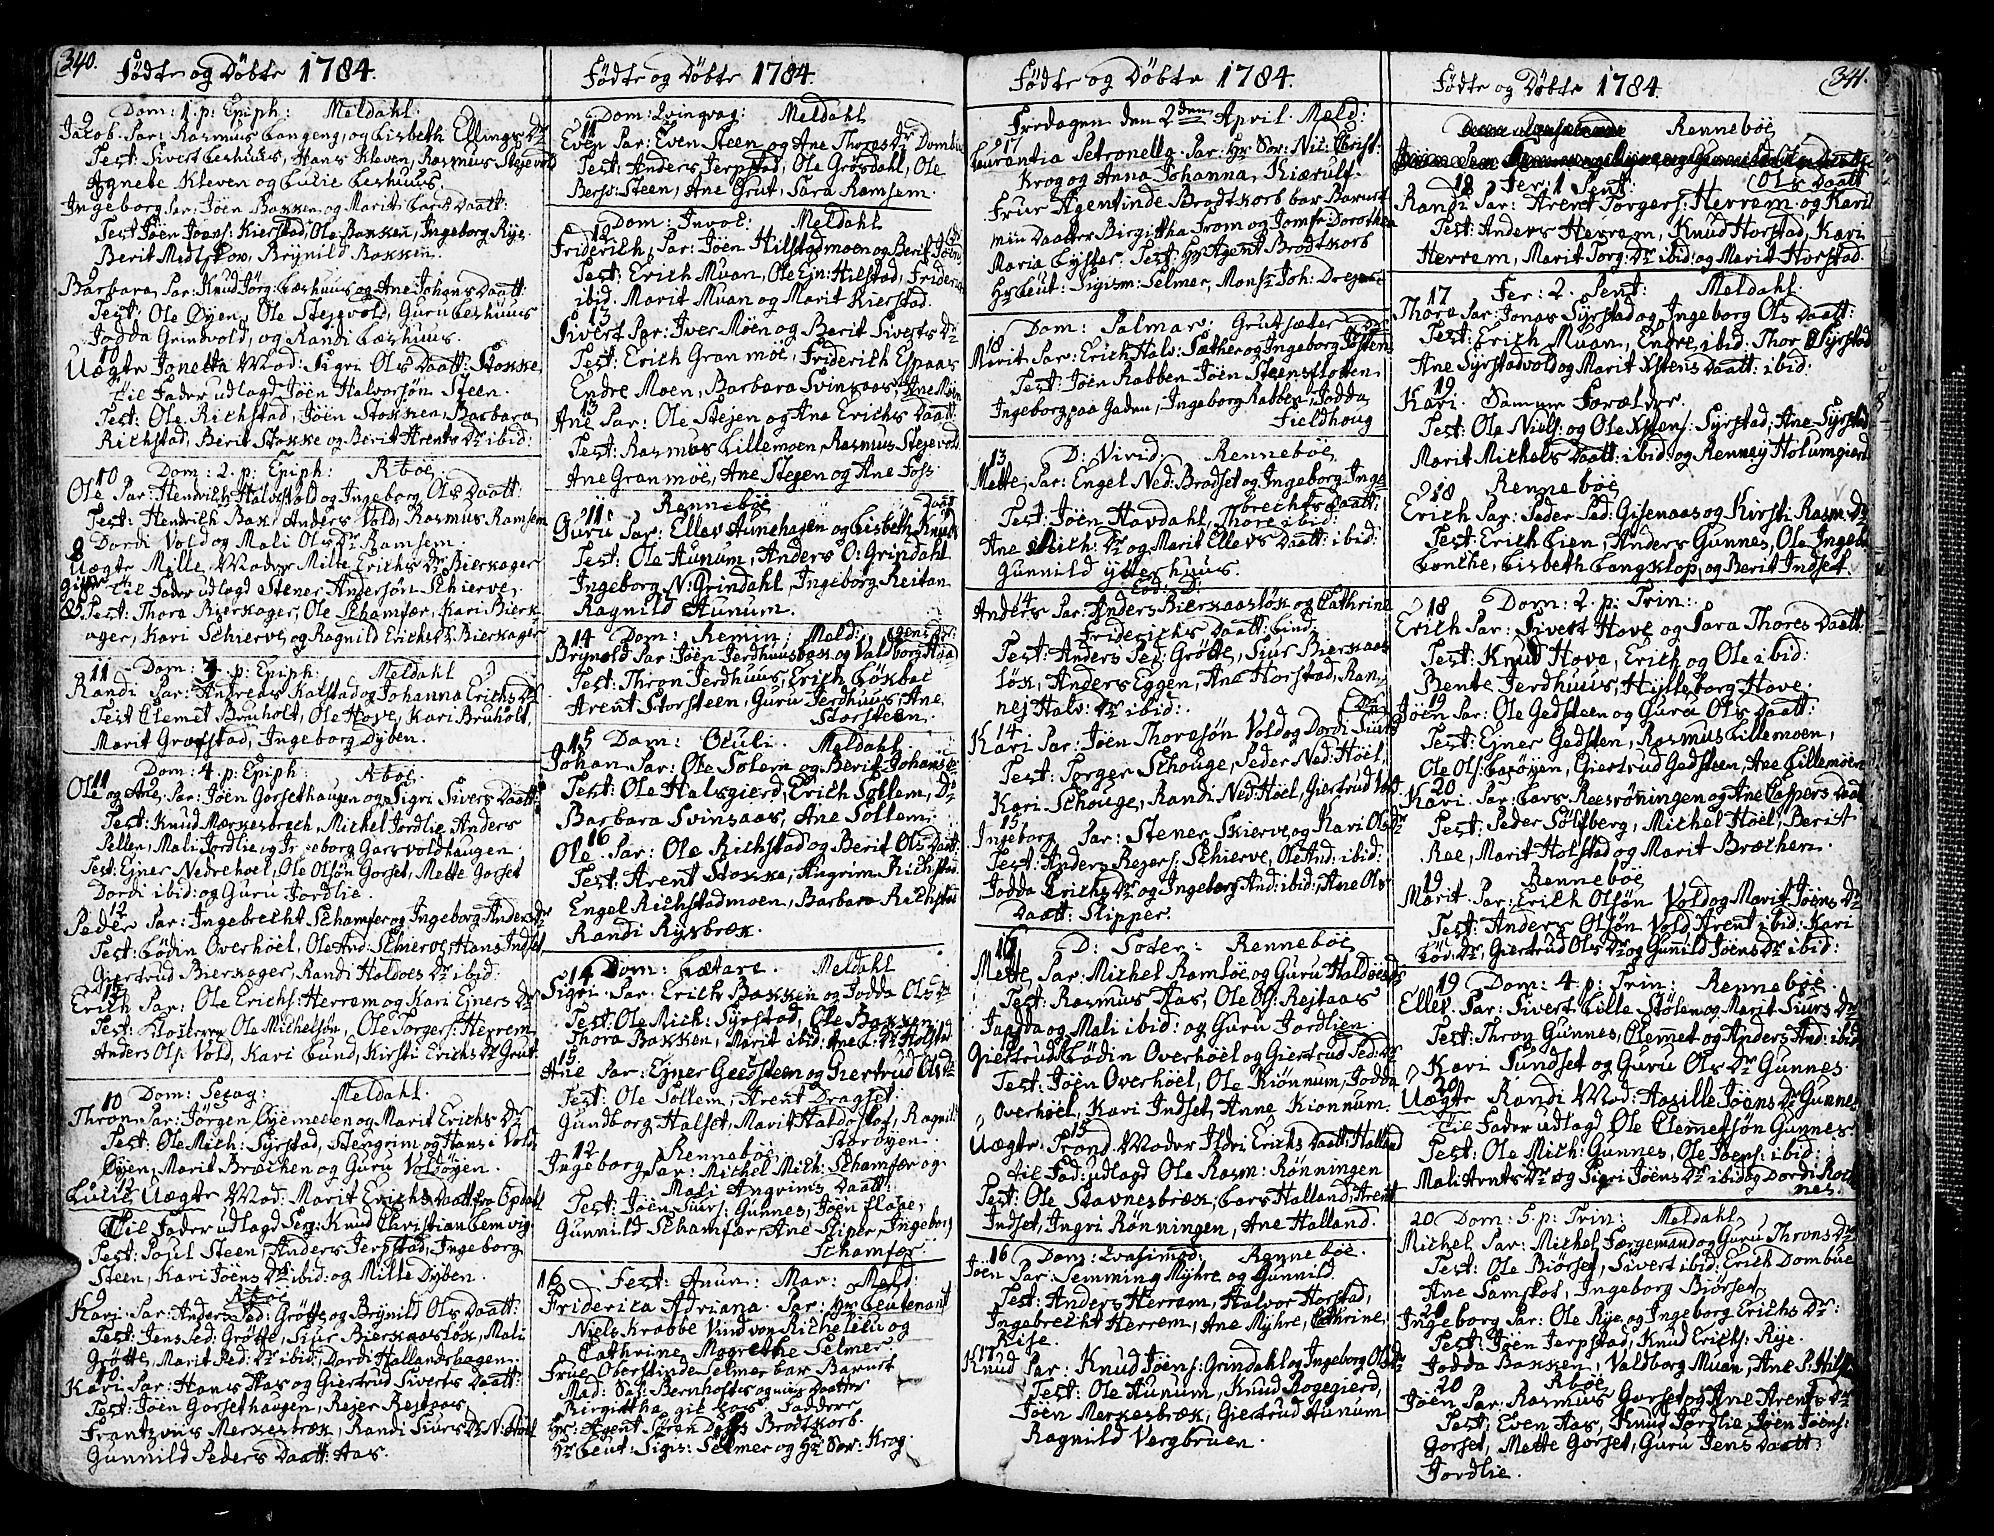 340.
Födte og Döbte 1784.
Dom: 1. p: Epiph: Meldahl
9
Jacob. Par: Rasmus Langeng, og Lisbeth Ellings Dr
Test: Sivert Leshuus, Hans Kleven, Rasmus Stejevold
Agnete Kleven og Lulie Leshuus.
Ingeborg Par: Jöen Bakken og Marit Lars Daatt:
Test Jöen Joens: Kierstad, Ole Bakken, Ingeborg Rye
Berit Medlskov, Brynild Bakken.
Barbara, Par: Knud Jörg: Leshuus og Ane Johans Daatt
Test: Ole Öyen, Ole Stejevold, Guru Leshuus
Jodda Grindvold, og Randi Leshuus.
10
Uægte Jonetta Mod: Sigri Ols Daatt: Stokke,
til Fader udlagd Jöen Halvorsön Steen.
Test: Ole Richstad, Jöen Stokken, Barbara
Richstad, Berit Stokke og Berit Arents Dr ibid:
Dom: 2. p: Epiph: Rböe.
10
Ole Par: Hendrich Halvsvold og Ingeborg Ols Daatt:
Test: Hendrich Bak: Anders Vold, Rasmus Ramsem
Dordi Vold og Mali Ols Dr Ramsem.
8
Uægte Mille, Moder Mille Erichs Dr Bierkager
til Fader udlagd Stener Andersön Schierve,
85. Test: Thora Bierkager, Ole Schamfær, Kari Bierk-
ager, Kari Schierve, og Ragnild Erichs Dr Bierkager
11 Dom: 3. p: Epiph: Meldahl
Randi Par: Andreas Kalstad og Johanna Erichs Dr
Test Clemet Bruholt, Ole Hove, Kari Bruholt,
Marit Græfstad, Ingeborg Dyben.
Dom: 4. p: Epiph: Rböe.
11
Ole og Ane, Par: Jöen Gorsethaugen og Sigri Sivers Daatt:
Test: Knud Mærkesbrech, Michel Jordlie, Anders
Pellen, Mali Jordlie, og Ingeborg Garsvoldhaugen.
Test: Ejner Nedrehoel, Ole Olsön Gorset, Mette Gorset
Dordi ibid: og Guru Jordlie.
12
Peder Par: Ingebrecht Schamfer og Ingeborg Anders Dr
Test: Lödin Overhöel, Ole And: Schierve, Hans Indset,
Giertrud Bierkager, Randi Haldoes Dr ibid:
13
Erich Par: Ole Erichs: Herrem og Kari Ejners Dr
Test: Ole Michelsön, Ole Torgers: Herrem
Anders Ols: Vold, Kari Lund, Kirsti Erichs Dr Grut.
Dom: Sexag: Meldahl.
10
Thron Par: Jörgen Öyemoelen og Marit Erichs Dr
Test: Ole Mich: Syrstad, Stengrim og Hans i Vold
Öyen, Marit Bræchen og Guru Voldöyen.
12
Lulie Uægte Mod: Marit Erichs Daatt: fra Opdahl
Til Fader udlagd Serg: Knud Christian Lemvig.
Test: Poul Steen, Anders Jerpstad, Ingeborg
Steen, Kari Jöens Dr ibid: og Mille Dyben.
9 Rböe
Kari. Par: Anders Ped: Grötte og Brynild Ols Daatt:
Test: Jens Ped: Grötte, Siur Bierkaaslök, Mali
Grötte, Marit Ped: Dr ibid: Dordi Hallandshagen.
10
Kari Par: Hans Has og Giertrud Siverts Daatt:
Test: Jöen Gorsethaugen, Rejer Rejstaas,
Frantz vins Merkesbræk, Randi Siurs Dr N: Höel
Gunnild Peders Daatt: Aas.
Födte og Döbte 1784
Dom: Qvinqvag: Meldahl
11
Even Par: Even Steen og Ane Thores Dr Dombue
Test: Anders Jerpstad, Ole Grösdahl, Ole
Bers: Steen, Ane Grut, Sara Ramsem.
Dom: Invoc: Meldahl
12
Friderich, Par: Jöen Hilstadmoen og Berit Jöens Dr
Test: Erich Muan, Ole Ejn: Hilstad, Friderich
ibid: Marit Muan og Marit Kierstad.
13
Sivert Par: Iver Möen og Berit Siverts Dr
Test: Erich Granmöe, Friderich Espaas
Endre Moen, Barbara Svinsaas, Ane Möen
13
Ane Par: Ole Stejen og Ane Erichs Daatt:
Test: Rasmus Lillemoen, Rasmus Stejevold.
Ane Granmöe, Ane Stejen og Ane Foss.
Renneböe Daatt
11
Guru Par: Ellev Aunehagen og Lisbeth Knuds
Test: Ole Aunum, Anders O: Grindahl
Ingeborg N: Grindahl, Ingeborg Reitan
Ragnild Aunum.
14 Dom: Remin: Meld:
Brynold Par: Jöen Jerdhuusbak og Valdborg Haagens Dr:
Test: Thron Jerdhuus, Erich Lökböe
Arent Storsteen, Guru Jerdhuus, Ane
Storsteen.
15 Dom: Oculi. Meldahl
Johan Par: Ole Solem og Berit Johans Dr
Test: Ole Halsgierd, Erich Söllem,
Barbara Svinsaas, Ane Söllem.
16
Ole Par: Ole Richstad og Berit Ols Daatt:
Test: Arent Stokke, Angrim Richstad
Engel Richstadmoen, Barbara Richstad
Randi Rysbræk.
14 Dom: Lætare. Meldahl
Sigri Par: Erich Bakken og Jodda Ols Dr
Test: Ole Mich: Syrstad, Ole Bakken
Thora Bakken, Marit ibid: Ane L: Dr Holstad
15
Ane Par: Ejner Geedsteen og Giertrud Ols Dr
Test: Ole Söllem, Arent Dragset
Gundborg Halset, Marit Haldostöf, Ragnild
Storöyen.
12 Renneböe
Ingeborg Par: Michel Mich: Schamfær og
Mali Angrims Daatt:
Test: Jöen Siurs: Gunnes, Jöen Flaae,
Gunnild Schamfær, Ane Sliper, Ingeborg
Schamfær.
16 Fest: Anun: Mar: Meld:
Friderica Adriana. Par: Hr Leutenant
Niels Krabbe Vind von Richelieu og
Cathrine Magrethe Selmer
Frue Oberstinde Selmer bar Barnet
Mad: Sal: Bernhofts og min Daatter
Birgittha gik hos Faddere
Hr: Agent Sören Dass Brodtkorb.
Hr Leut: Sigis: Selmer og Hr Sor: Krog.
Födte og Döbte 1784.
Fredagen den 2den April Meld:
17
Laurantia Petronella. Par: Hr Sor: Nic: Christ:
Krog og Anna Johanna, Kiærulf.
Frue Agentinde Brodtkorb bar Barnet
min Daatter Birgitha From og Jomfr: Dorothea
Maria Lyster. Test: Hr Agent Brodtkorb
Hr Leut: Sigism: Selmer, Monsr Joh: Dreyer
Dom: Palmar: Grutsæter
18
Marit Par: Erich Hals: Sæther og Ingeborg Estens Dr
Test: Jöen Rabben Jöen Steensfloten
Ingeborg paa Gaden, Ingeborg Rabben, Jodda
Fieldhoug
D: Virid: Renneböe
13
Mette, Par: Engel Ned: Brodset og Ingeborg Inge-
brechts Daatt:
Test: Jöen Havdahl, Thore ibid:
Ane Mich: Dr og Marit Ellevs Daatt: ibid:
Gunnild Ytterhuus.
Eod: D:
14
Anders Par: Anders Bierkaaslök og Cathrine
Friderichs Daatt: Lind.
Test: Anders Ped: Grötte, Siur Bierkaas
lök, Anders Eggen, Ane Horstad, Ran-
nej Halv: Dr ibid:
14
Kari Par: Jöen Thoresön Vold og Dordi Siurs Da
Test: Torger Schouge, Peder Ned: Höel,
Kari Schouge, Randi Ned: Höel, Giertrud Vold.
15
Ingeborg Par: Stener Skierve og Kari Ols Dr
Test: Anders Rejers: Schierve, Ole And: ibid:
Jodda Erichs Dr og Ingeborg And: ibid: Ane Ols
Daatt: Slipper.
16 D: Pofter: Renneböe
Mette, Par: Michel Ramsöe og Guru Haldoes Dr
Test: Rasmus Has, Ole Ols: Rejtaas
Jaadda og Mali ibid: og Guru Jordlien.
15
Giertrud Lödin Overhöel og Giertrud Ped: Dr
Test: Jöen Overhöel, Ole Kiönnum, Jodda
Overhöel, Kari Indset, Anne Kionnum.
15
Uægte Trond. Moder Ildri Erichs Daatt: Halland
til Fad: udlagd Ole Rasm: Rönningen
Test: Ole Stavnesbræk, Lars Halland, Arent
Indset, Ingri Rönningen, Ane Halland.
16 Dom: Qvasimod: Renneböe.
Jöen Par: Semming Myhre og Gunnild.
Test: Anders Herrem, Halvor Horstad,
Ingebrecht Herrem, Ane Myhre, Cathrine
Rise.
17
Knud Par: Knud Jöens: Grindahl og Ingeborg Ols Dr
Test: Ole Aunum, Knud Rogegierd,
Jöen Merkesbræk, Giertrud Aunum
Ragnild Vergbruen.
Födte og Döbte 1784.
341.
Renneböe
18 Fer: 1 Pent: Ols Daatt
Randi Par: Arent Torgers: Herrem og Kari
Test: Anders Herrem, Knud Horstad, Kari
Herrem, Marit Torg: Dr ibid: og Marit Horstad.
17 Fer: 2. Pent: Meldahl.
Thora Par: Jonas Syrstad og Ingeborg Ols Daatt:
Test: Erich Muan, Endre ibid: Thor Syrstad
Ane Syrstadvold og Marit Estens Daatt: ibid:
19
Kari. Samme Forælder.
Test: Ole Niels: og Ole Estens: Syrstad, Ane Syrstad
Marit Michels Daatt: ibid og Rennej Holumgierd
18 Renneböe
Erich Par: Peder Ped: Gisenaas og Kirsti Rasm: Dr
Test: Erich Lien, Anders Gunnes, Ole Ingebr
Lenche, Lisbeth Langklop, og Berit Indset.
18 Dom: 2. p: Trin:
Erich Par: Sivert Hove og Sara Thores Daatt
Test: Knud Hove, Erich og Ole ibid:
Bente Jerdhuus, Hylleborg Hove.
19
Jöen Par: Ole Gedsteen og Guru Ols Daatt:
Test: Ejner Gedsten, Rasmus Lillemoen,
Ole Ols: Leröyen, Giertrud Gedsteen, Ane Lillemöen
20
Kari. Par: Lars Reesröningen og Ane Caspers Daat
Test: Peder Sölsberg, Michel Höel, Berit
Roe, Marit Holstad og Marit Bræchen.
19 Renneböe
Marit Par: Erich Olsön Vold og Marit Jöens Dr
Test: Anders Olsön Vold, Arent ibid: Kari
Löd: Dr, Giertrud Ols Dr og Gunild Jöens Dr ibid:
19 Dom: 4. p: Trin: Renneböe.
Ellev Par: Sivert Lille Stölan og Marit Siurs Dr
Test: Thron Gunnes, Clemet og Anders And: ibid
Kari Sundset og Guru Ols Dr Gunnes.
20
Uægte Randi Mod: Aasille Jöens Dr Gunnes
til Fader udlagd Ole Clemetsön Gunnes.
Test: Ole Mich: Gunnes, Ole Joens: ibid:
Mali Arnts Dr og Sigri Jöens Dr ibid og Dordi Rok-
nes.
20 Dom: 5. p: Trin: Meldahl
Michel Par: Michel Færgemand og Guru Throns Dr
Test: Ole Biörset, Sivert ibid: Erich Dombue
Ane Samskot, Ingeborg Biörset.
20
Ingeborg Par: Ole Rye og Ingeborg Erichs Dr:
Test: Jöen Jerpstad, Knud Erichs: Rye.
Jodda Bakken, Valdborg Muan, Ane P: Hilst
20 Rböe
Jöen Par: Rasmus Gorset og Ane Arents Dr
Test: Even Aas, Knud Jordlie Jöen Jöens:
Gorset, Mette Gorset, Guru Jens Daatt:
Jordlie.